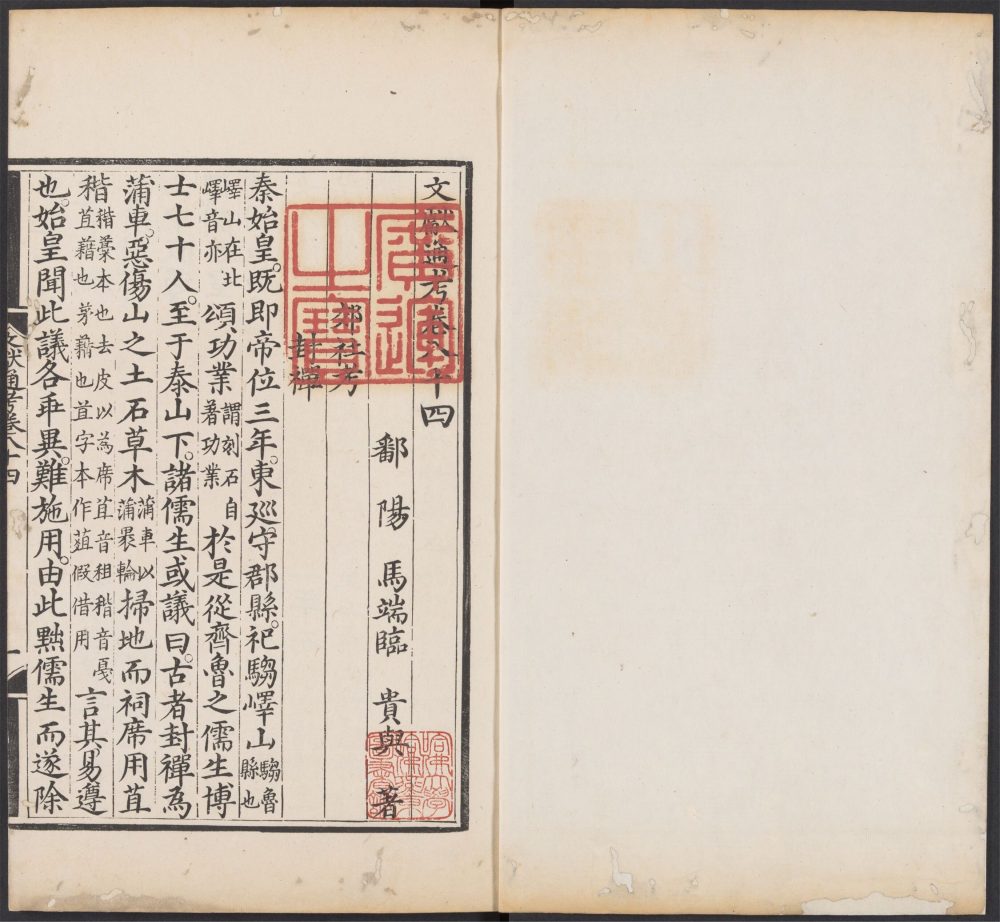 文獻通考卷八十四
鄱陽馬端臨貴與著
郊社考
封禪
秦始皇。既即帝位三年。東廵守郡縣。祀騶嶧山騶魯縣也
嶧山在北嶧音亦頌功業謂刻石自著功業於是從齊魯之儒生博
士七十人。至于泰山下。諸儒生或議曰。古者封禪為
蒲車。惡傷山之土石草木蒲車以蒲褁輪掃地而祠席用苴
稭稭藁本也去皮以為席苴音租稭音戞苴藉也茅藉也苴字本作葅假借用言其易遵
也。始皇聞此議各乖異。難施用。由此黜儒生而遂除
文獻通考卷八十四
一
廣運之寶
哈佛大學